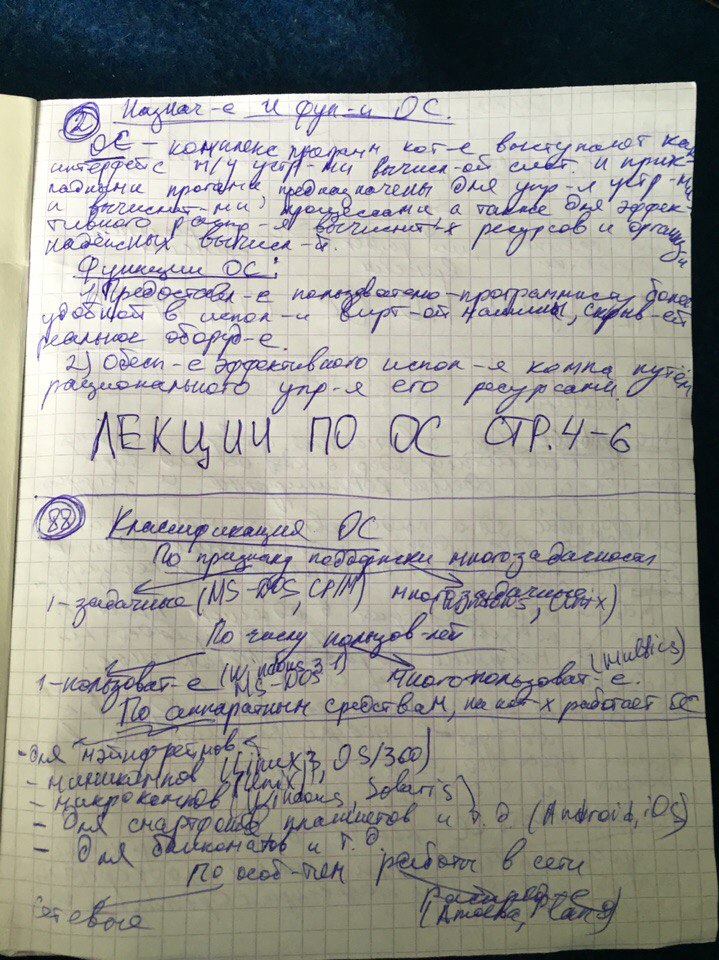 2 Назнач-е и фун-и ОС.
ОС – комплекс программ кот-е выступают как
интерфейс м/у устр-ми вычисл-ой сист. и прик-
ладными прогами предназначены для упр-я устр-ми
и вычислит-ми процессами а также для эффек-
тивного распр-я вычислит-х ресурсов и организ
надёжных вычисл-й.
Функции ОС:
1) Предоставл-е пользователю-программисту более
удобной в испол-и вирт-ой машины, скрыв-ей
реальное оборуд-е.
2) Обесп-е эффективного испол-я компа путём
рационального упр-я его ресурсами.
ЛЕКЦИИ ПО ОС СТР.4-6
88 Классификация ОС
По признаку поддержки многозадачности
1-задачные (MS-DOS, CP/M) многозадачные (Windows, Unix)
По числу пользов-лей
1-пользоват-е (Windows 3.1 MS-DOS) многопользоват-е. (Multics)
По аппаратным средствам, на кот-х работает ОС
-для мэйнфреймов (Linux, OS/360)
- миникомпов (Unix)
- микрокомпов (Windows, Solaris)
- для смартфонов планшетов и т.д. (Android, iOS)
- для банкоматов и т.д.
По особ-тям работы в сети
Сетевые Распред-е
(Amoeba, Plan 9)